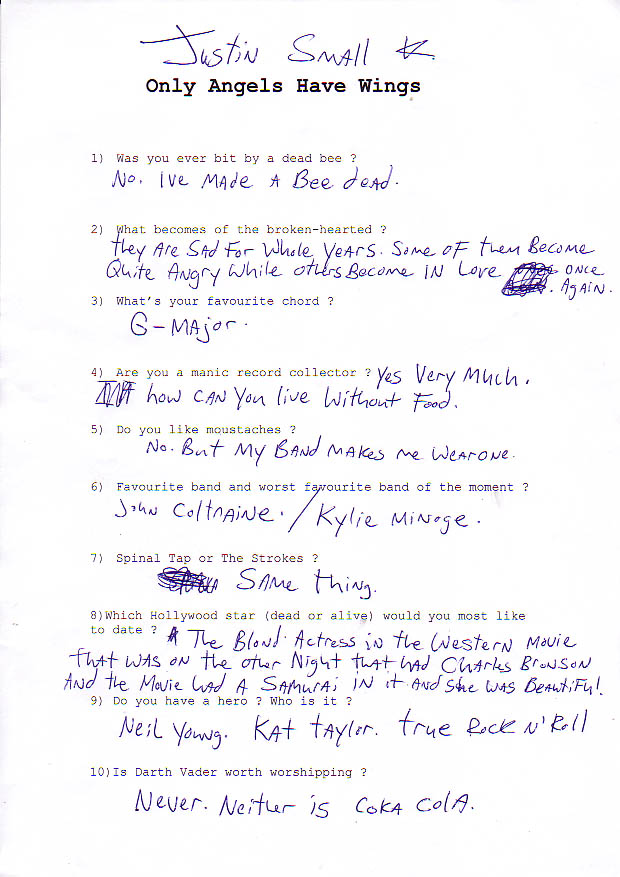 Justin Small
Only Angels Have Wings
1) Was you ever bit by a dead bee ?
No. I've MADE A Bee deAD.
2) What becomes of the broken-hearted ?
they Are SAD For Whole YeArs. Some OF them Become
Quite Angry While othersBecome IN Love once
AgAiN.
3) What's your favourite chord ?
G-MAjor.
4) Are you a manic record collector ? Yes Very Much.
how CAN You live Without Food.
5) Do you like moustaches ?
No. But MY BAND MAKes me WeArone.
6) Favourite band and worst favourite band of the moment ?
John Coltraine. / Kylie Minoge.
7) Spinal Tap or The Strokes ?
SAme thing.
8)Which Hollywood star (dead or alive) would you most like
to date ? The Blond Actress in the Western Movie
that was on the other Night that had Charles Bronson
And the Movie had A SAmurAi IN it AND She was BeAutiFul!
9) Do you have a hero ? Who is it ?
Neil Young. KAt tAylor. true Rock N' Roll
10)Is Darth Vader worth worshipping ?
Never. Neither is CokA ColA.